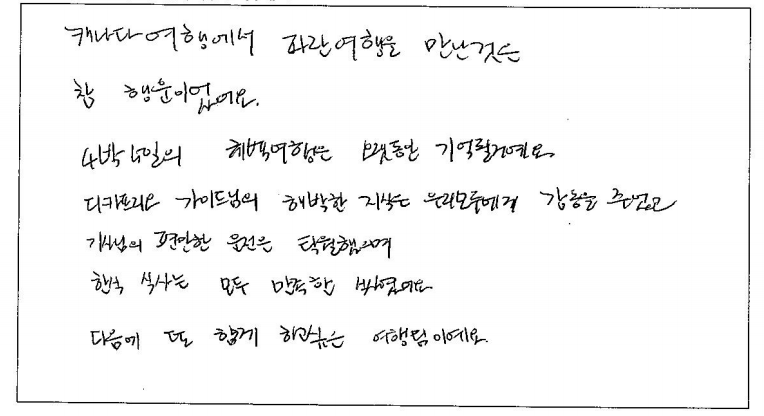 캐나다여행에서 파란여행을 만난것은
참 행운이었어요.
4박 5일의 여행은 오랫동안 기억될거예요.
디카프리오 가이드님의 해박한 지식은 우리모두에게 감동을 주었고
기사님의 편안한 운전은 탁월했으며
한식 식사는 모두 만족한 식사였어요
다음에 또 함께 하고싶은 여행팀이예요.